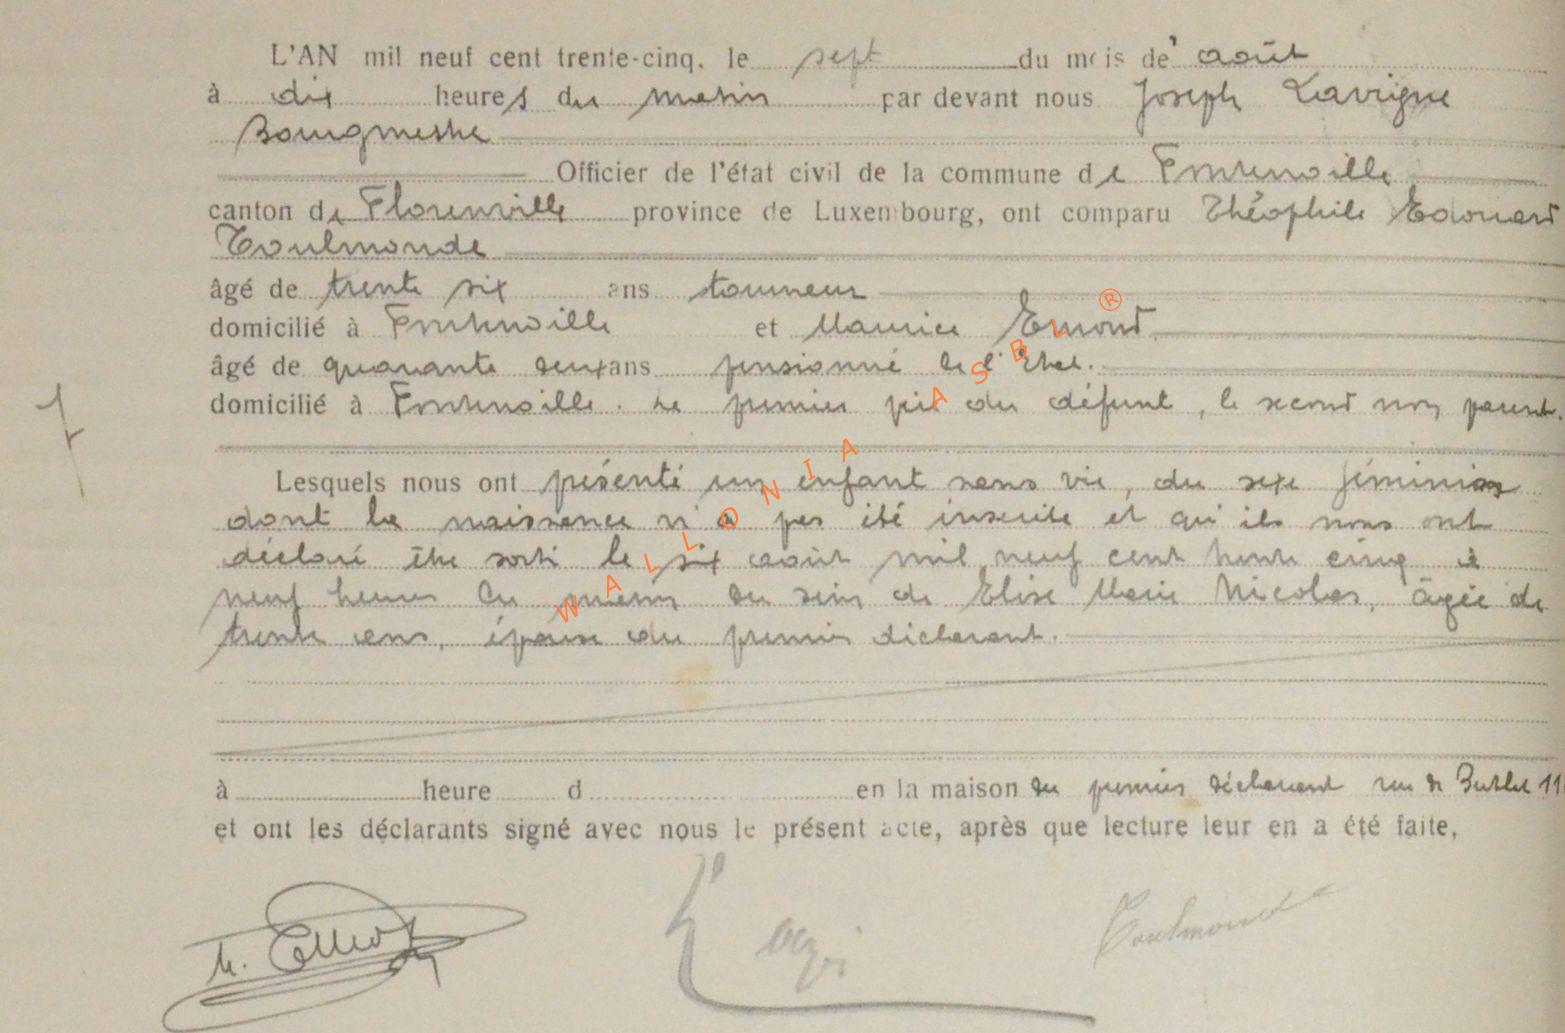 L'AN mil neuf cent trente-cinq, le sept du mois de août
à dix heures du matin par devant nous Joseph Lavigne
Bourgmestre
Officier de l'état civil de la commune de Fontenoille
canton de Florenville province de Luxembourg, ont comparu Théophile Edouard
Toulmonde
âgé de trente six ans tourneur
domicilié à Fontenoille et Maurice Emond
âgé de quarante deux ans pensionné de l'Etat.
domicilié à Fontenoille. Le premier père du défunt, le second non parent.
Lesquels nous ont présenté un enfant sans vie, du sexe féminin
dont la naissance n'a pas été inscrite et qu'ils nous ont
déclaré être sorti le six août mil neuf cent trente cinq à
neuf heures du matin du sein de Elise Marie Nicolas, âgée de
trente ans, épouse du premier déclarant.
à heure d en la maison du premier déclarant rue de
et ont les déclarants signé avec nous le présent acte, après que lecture leur en a été faite,
M. Emond Toulmonde
WALLONIA ASBL ®